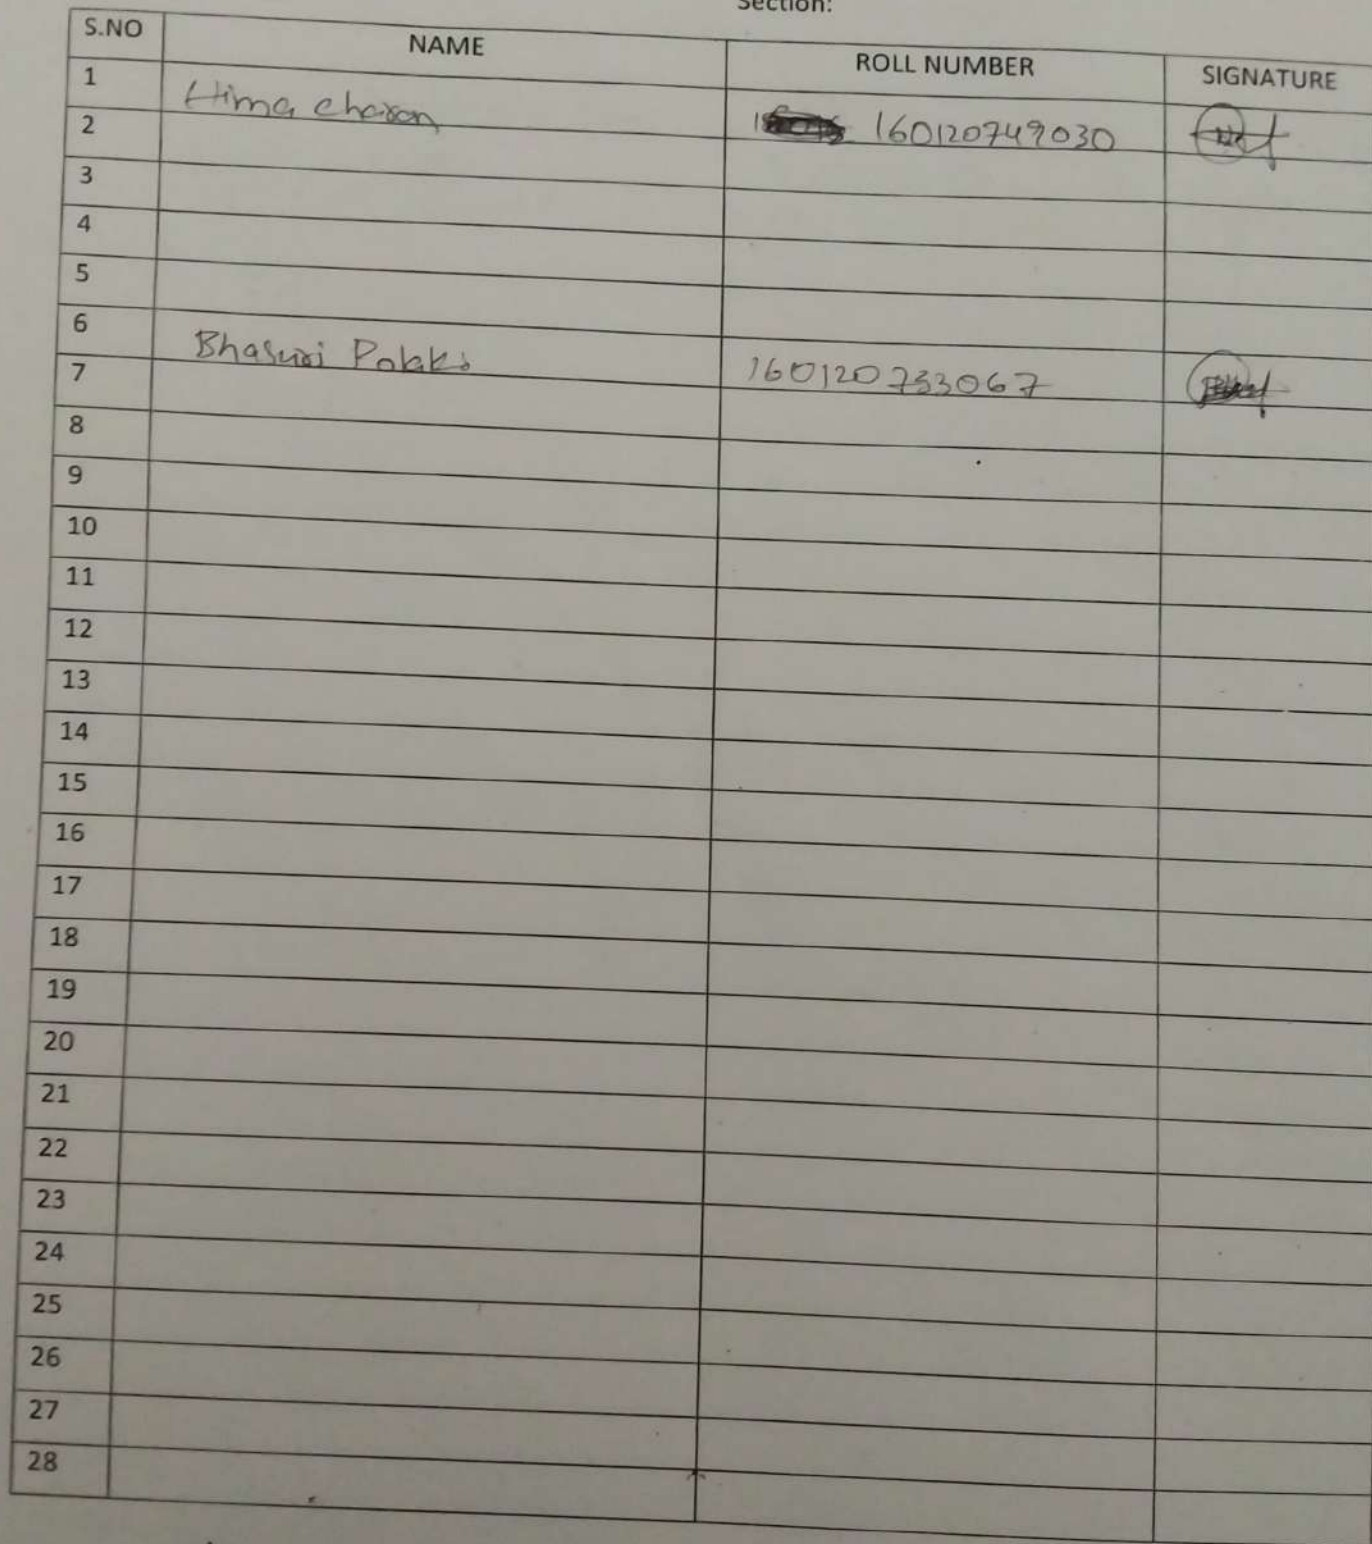 Section:
S.NO NAME ROLL NUMBER SIGNATURE
1 Hima charan 160120749030
2
3
4
5
6 Bhasuri Polaki 160120733067
7
8
9
10
11
12
13
14
15
16
17
18
19
20
21
22
23
24
25
26
27
28